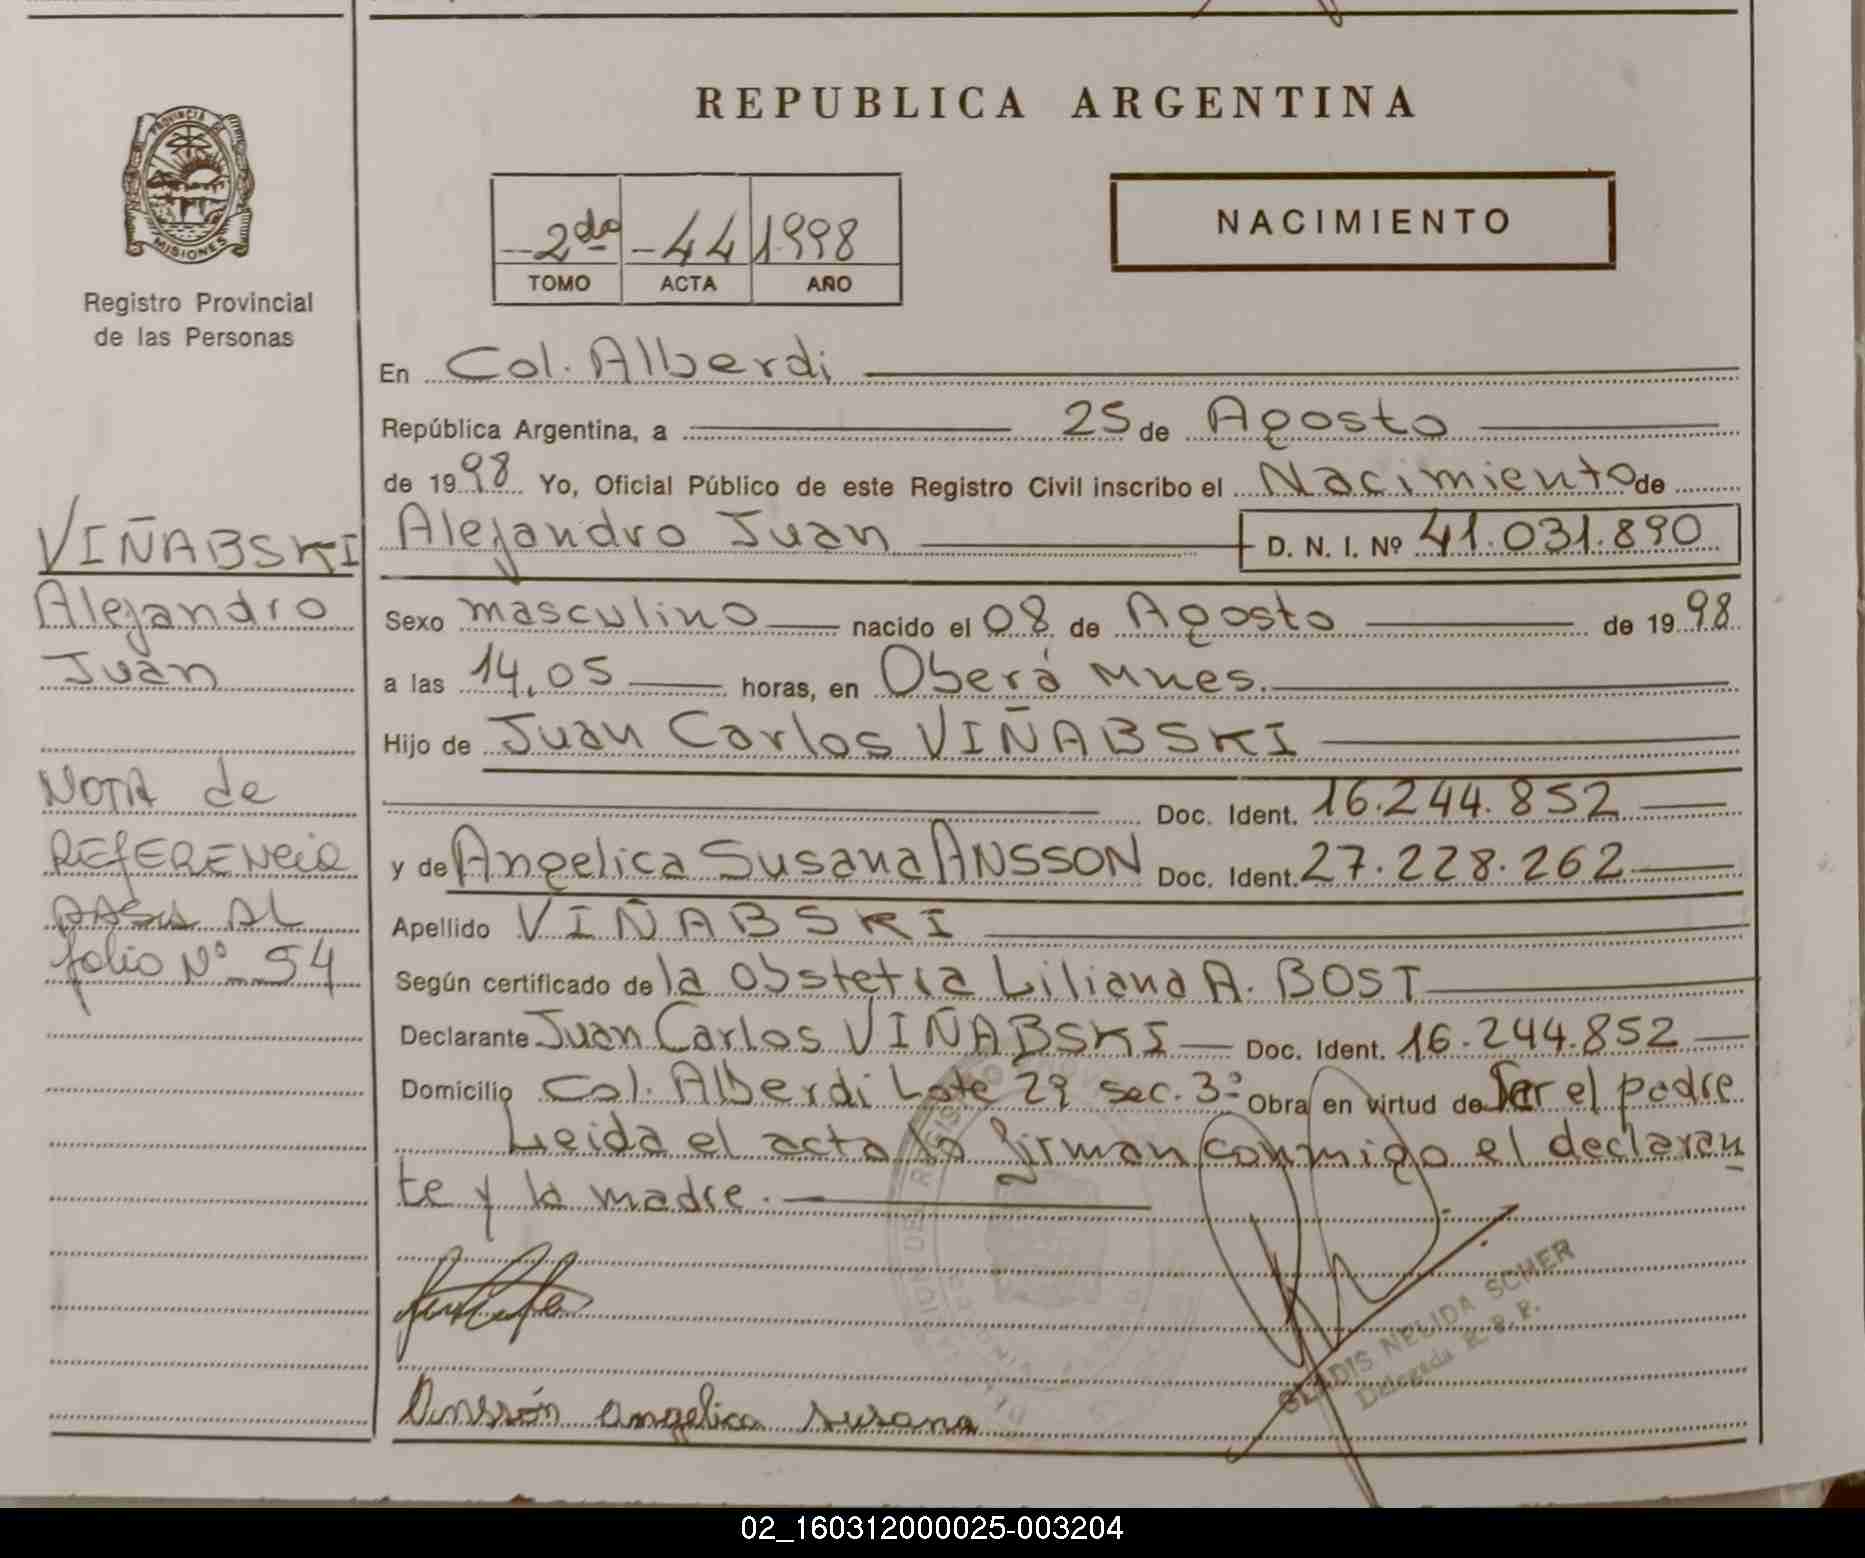 REPUBLICA ARGENTINA
PROVINCIA DE
MISIONES
Registro Provincial
de las Personas
2da 44 1998
TOMO ACTA AÑO
NACIMIENTO
En Col. Alberdi
República Argentina, a 25 de Agosto
de 1998 Yo, Oficial Público de este Registro Civil inscribo el Nacimiento de
Alejandro Juan D. N. I. Nº 41.031.890
Sexo masculino nacido el 08 de Agosto de 1998
a las 14,05 horas, en Oberá Mnes.
Hijo de Juan Carlos VIÑABSKI
Doc. Ident. 16.244.852
y de Angelica Susana ANSSON Doc. Ident. 27.228.262
Apellido VIÑABSKI
Según certificado de la Obstetra Liliana A. BOST
Declarante Juan Carlos VIÑABSKI Doc. Ident. 16.244.852
Domicilio Col. Alberdi Lote 29 sec. 3º Obra en virtud de Ser el padre
Leida el acta la firman conmigo el declaran
te y la madre.
VIÑABSKI
Alejandro
Juan
NOTA de
REfERENciA
PASA AL
folio Nº 54
Anssón angelica susana
GLADIS NELIDA SCHER
Delegada R. P. P.
02_160312000025-003204